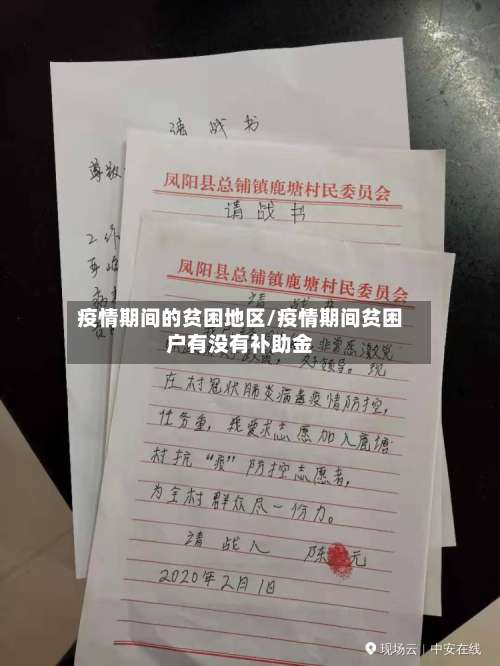 请战书
尊敬
工作
凤阳县总铺镇鹿塘村民委员会
请战书
凤阳县总铺镇鹿塘村民委员会
疫情期间的贫困地区/疫情期间贫困
户有没有补助金
非常感激党
好领导。现
在村冠状肺炎病毒疫情防控,
任务重,我要求志愿加入鹿塘
村抗“疫”防控志愿者,
为全村群众尽一份力。
请战人 陈 元
2020年2月1日
现场云 | 中安在线